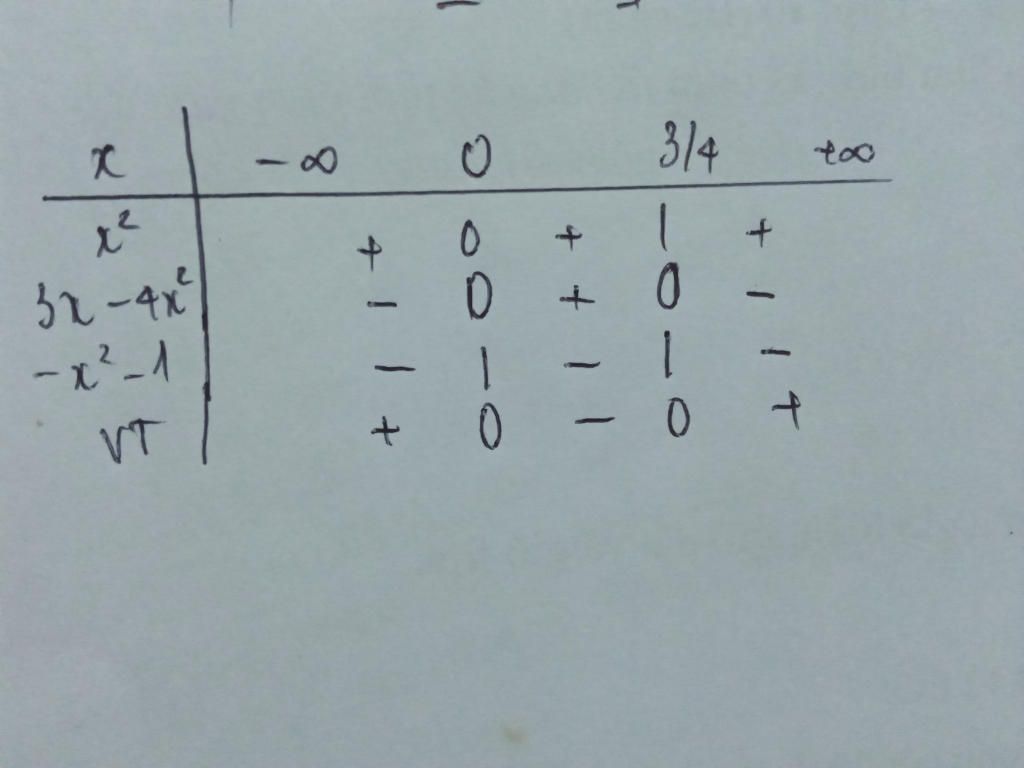 x | -∞ 0 3/4 +∞
x² | + 0 + | +
3x - 4x² | - 0 + 0 -
-x² - 1 | - | - | -
VT | + 0 - 0 +